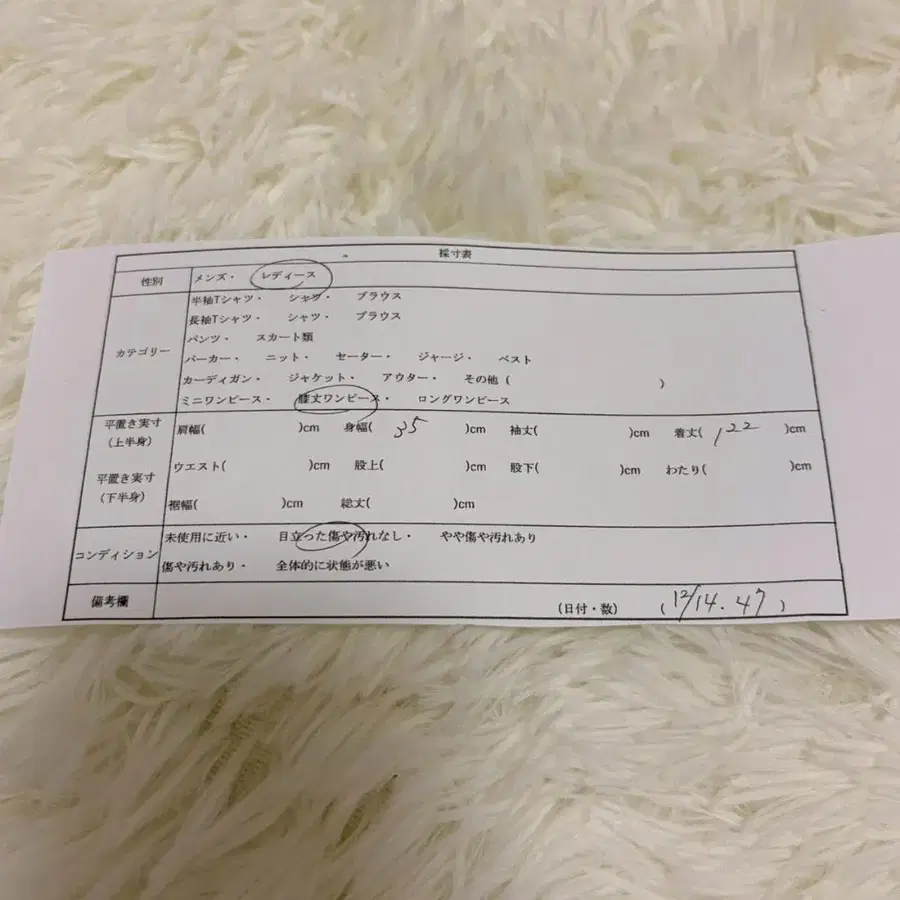 採寸表
性別 メンズ・ レディース
半袖Tシャツ・ シャツ・ ブラウス
長袖Tシャツ・ シャツ・ ブラウス
パンツ・ スカート類
カテゴリー パーカー・ ニット・ セーター・ ジャージ・ ベスト
カーディガン・ ジャケット・ アウター・ その他 ( )
ミニワンピース・ 膝丈ワンピース・ ロングワンピース
平置き実寸 肩幅( )cm 身幅( 35 )cm 袖丈( )cm 着丈( 122 )cm
(上半身)
平置き実寸 ウエスト( )cm 股上( )cm 股下( )cm わたり( )cm
(下半身)
裾幅( )cm 総丈( )cm
コンディション 未使用に近い・ 目立った傷や汚れなし・ やや傷や汚れあり
傷や汚れあり・ 全体的に状態が悪い
備考欄 (日付・数) ( 12/14. 47 )